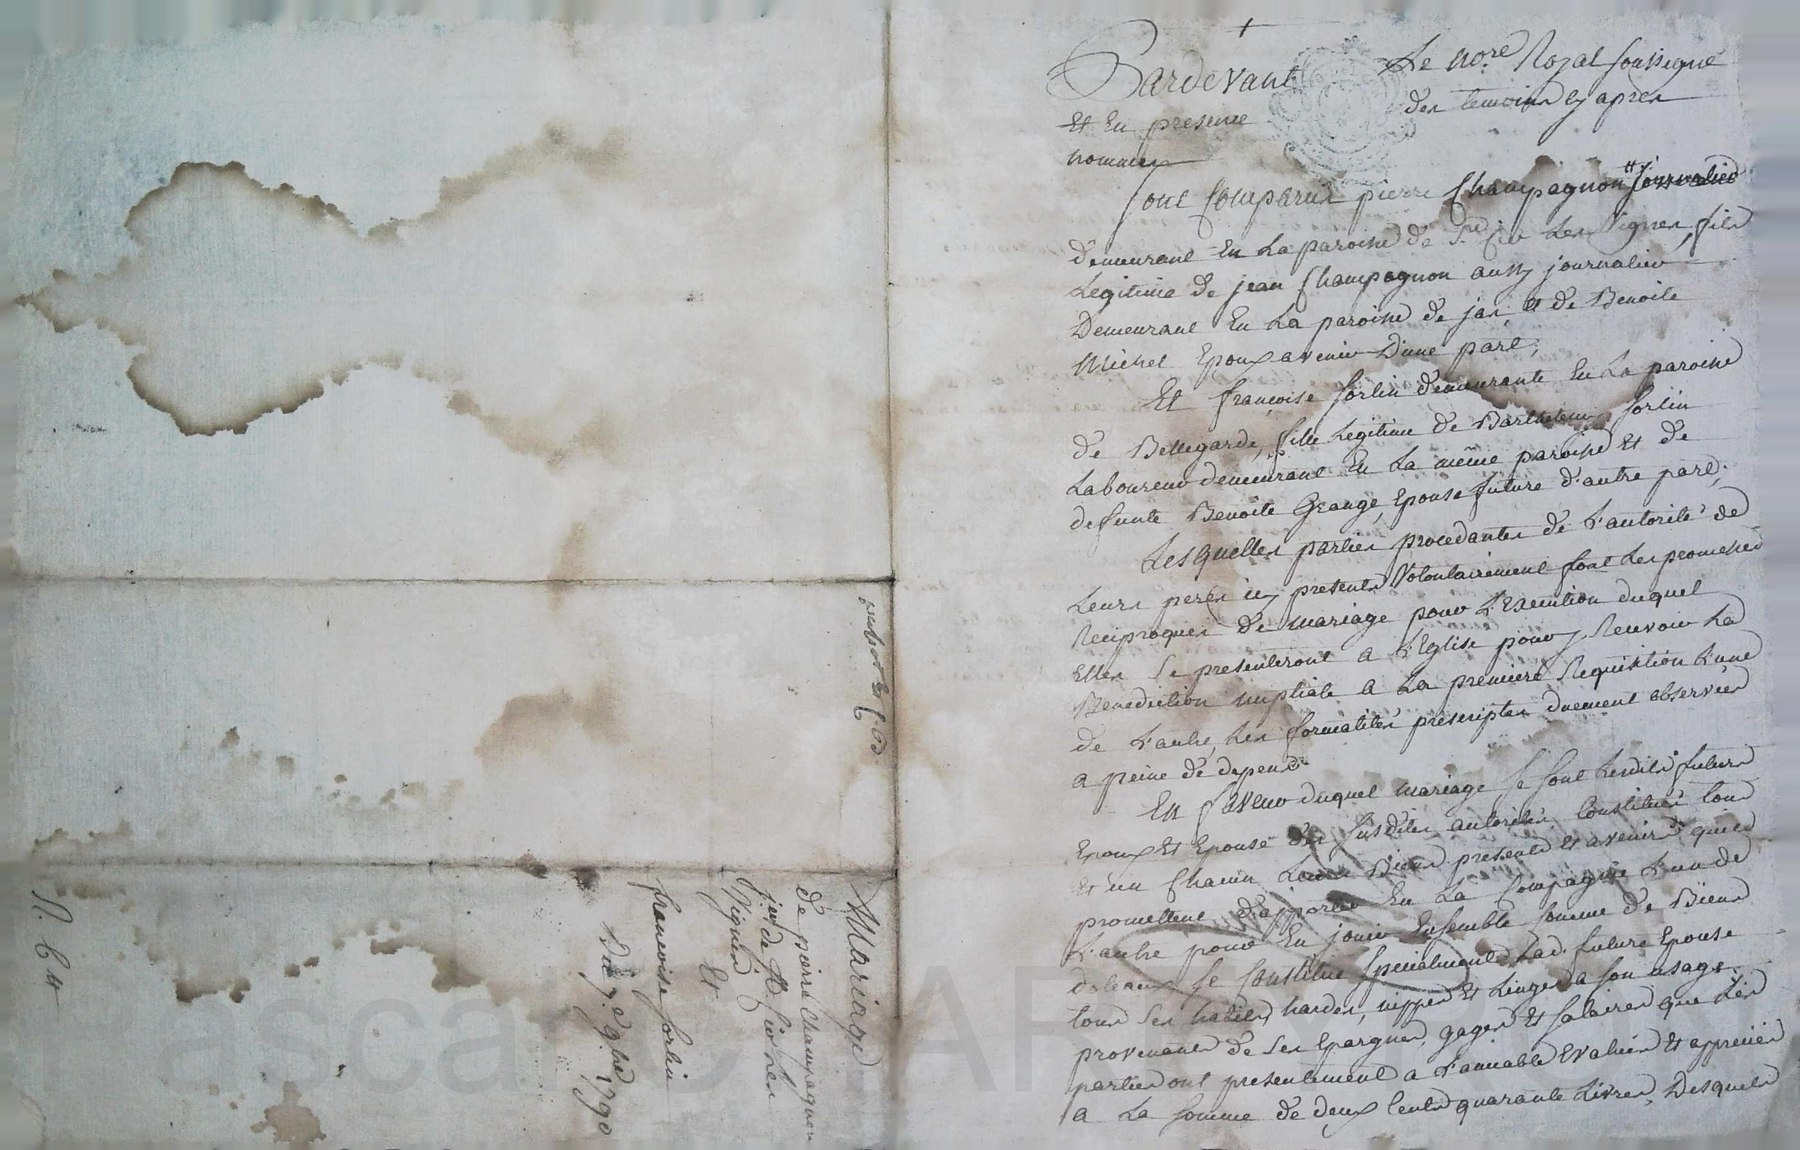 Pardevant Le no.re Royal soussigné
Et En presence des temoins cy apres
nommes
Sont Comparus pierre Champagnon journalier
demeurant En La paroisse de St Cir Les Vignes, fils
Legitime de jean Champagnon aussy journalier
Demeurant En La paroisse de jas, et de Benoite
Michel Epoux avenir D'une part;
Et françoise forlin demeurante En La paroisse
de Bellegarde, fille Legitime de Barthelemy forlin
Laboureur demeurant En La même paroisse Et de
defunte Benoîte Grange, Epouse future d'autre part;
Lesquelles parties procedantes de L'autorité de
Leurs peres icy presents Volontairement font Les promesses
Reciproques de mariage pour L'Execution duquel
Elles Se presenteront a L'Eglise pour y Recevoir La
Benediction nuptiale a La premiere Requisition L'une
de L'autre, Les formalités prescriptes duement observées
a peine de depens
En faveur duquel mariage Se sont Lesdits futurs
Epoux Et Epouse des susdites autorités Constitués tous
Et un Chacun Leurs Biens presents et avenirs qu'ils
promettent d'apporter En La Compagnie L'un de
L'autre pour En jouir Ensemble comme de Biens
dotaux Se Constitue specialement Lad. future Epouse
tous Ses habits, hardes, nippes Et Linges a son usage
provenants de Ses Epargnes, gages Et salaires que Les
parties ont presentement a L'amiable Evalués Et appreciés
a La somme de deux Cents quarante Livres, Desquels
Mariage
de pierre Champagnon
de St Cir Les
Vignes
Et
francoise forlin
Du 7. 9bre 1790
N. 64